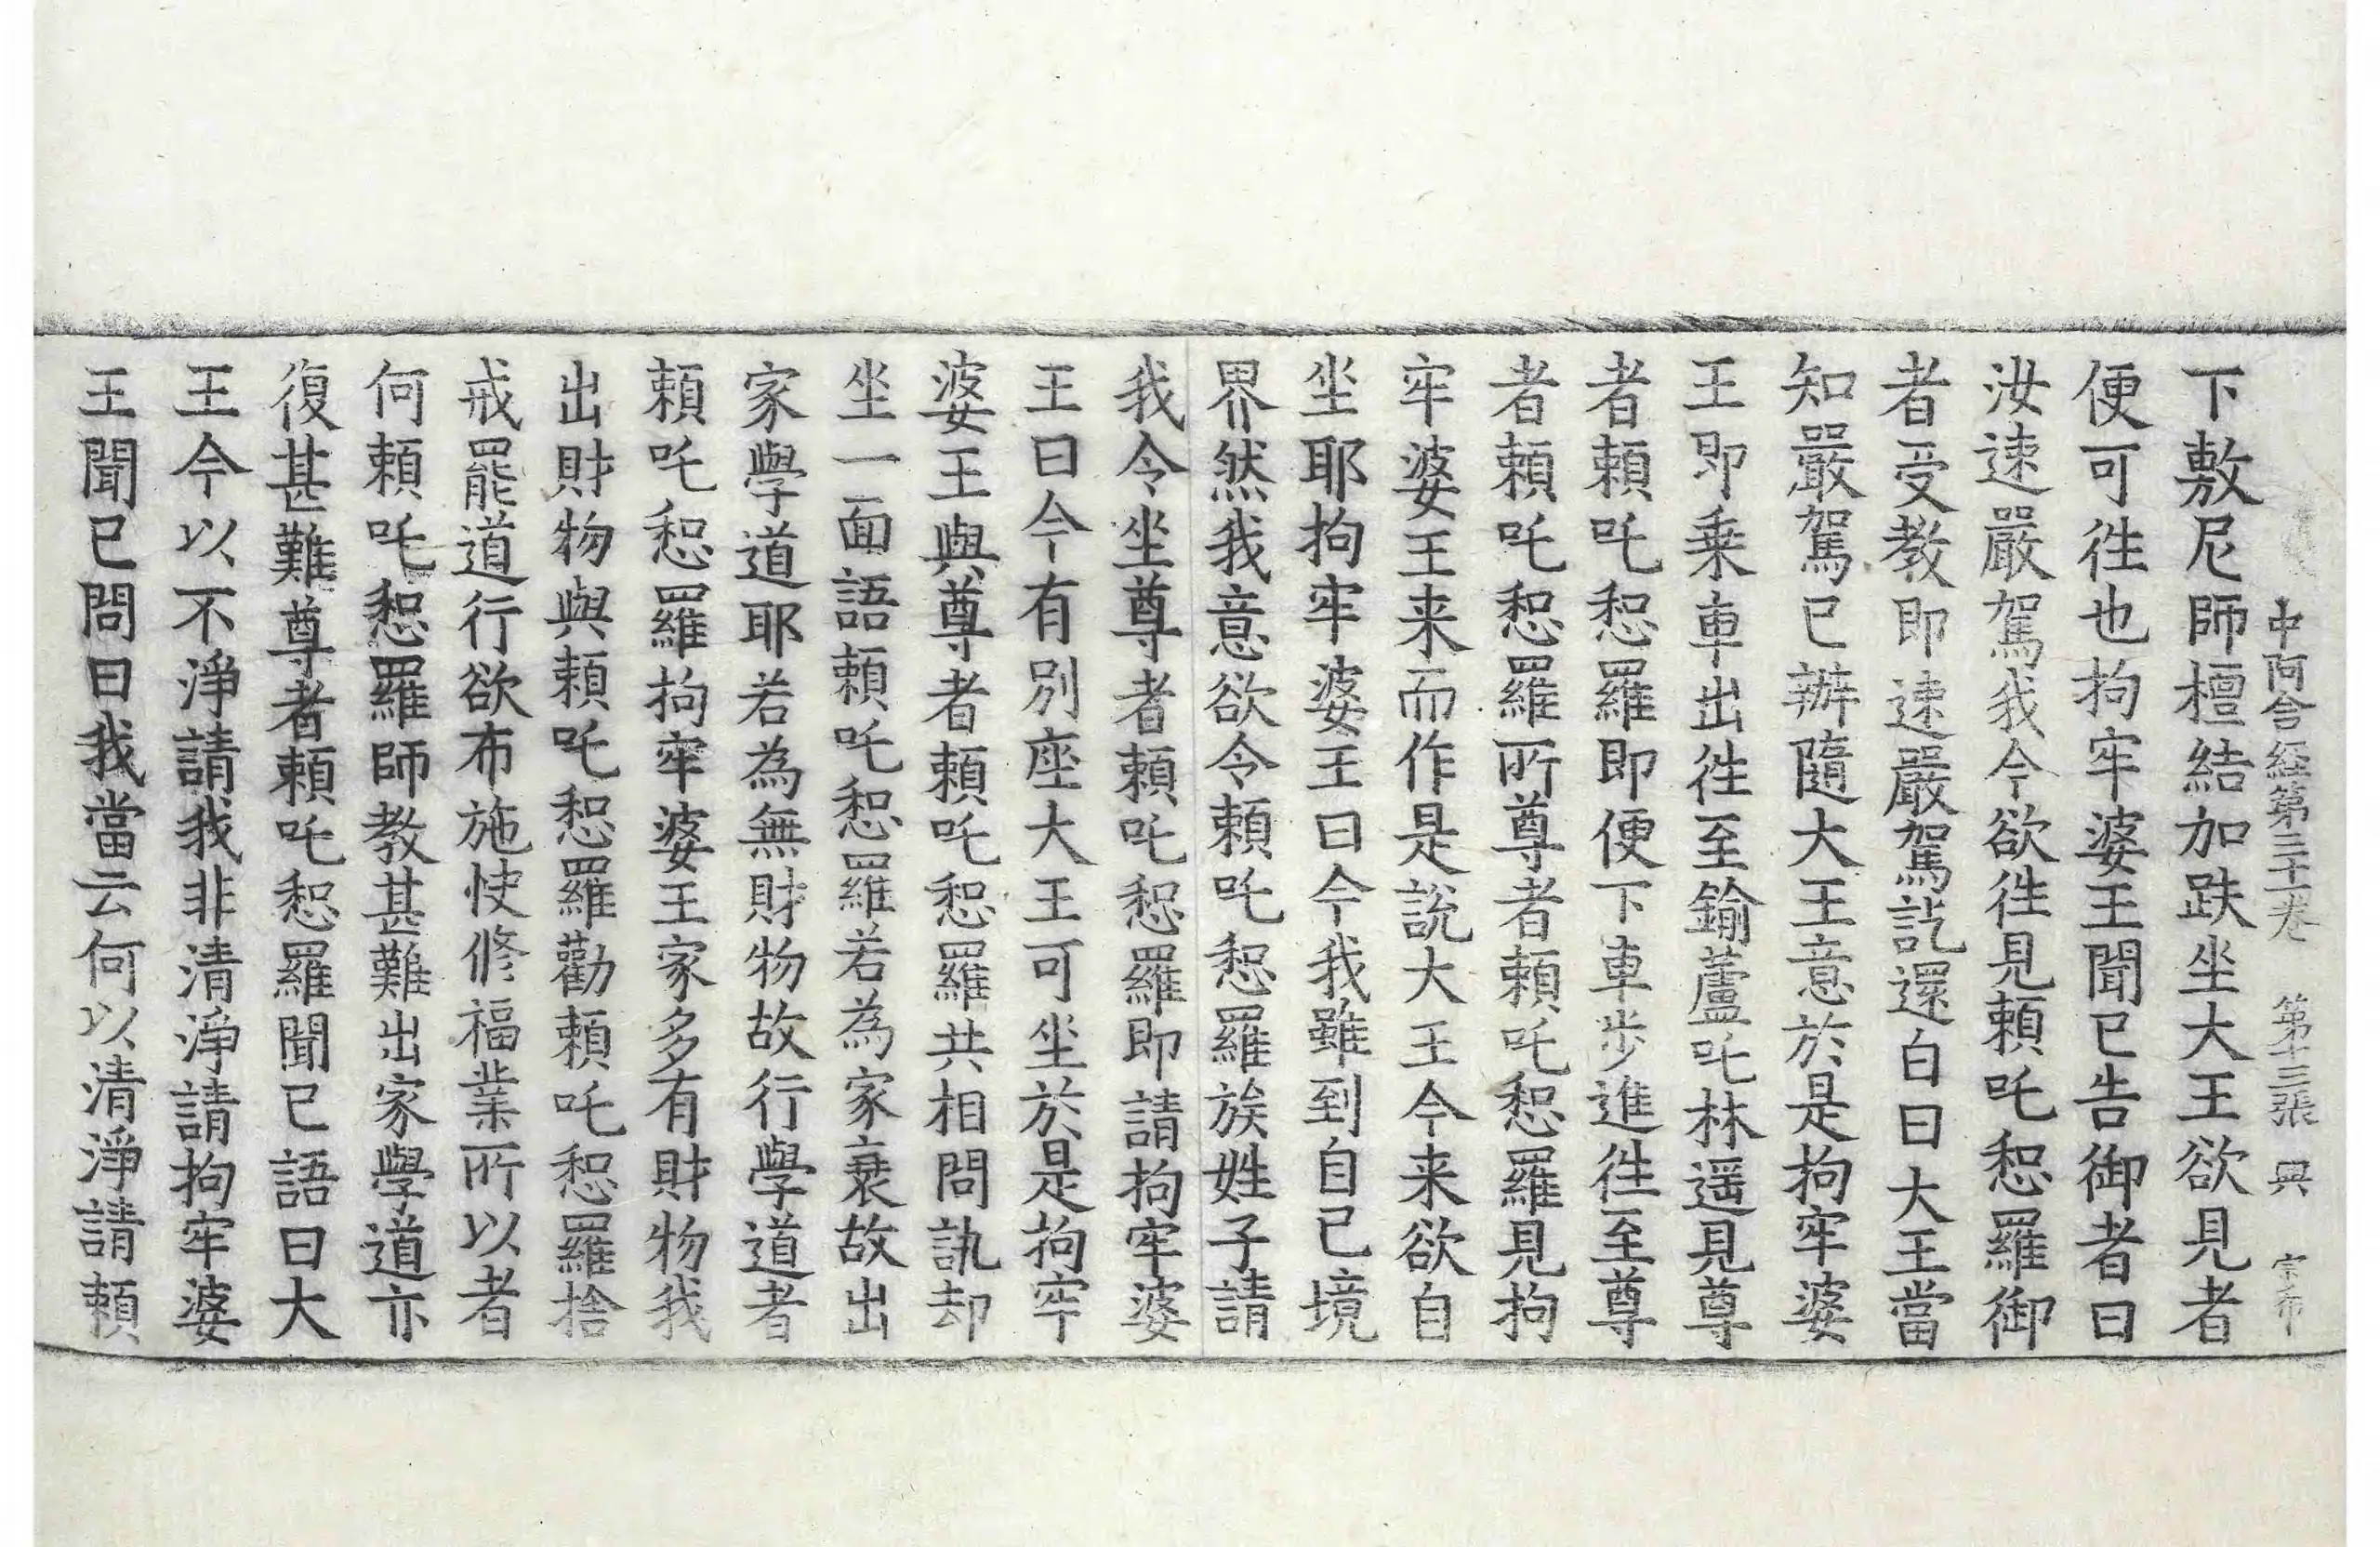 中阿含経第三十一卷 第十三張 興 宗布
下敷尼師檀結加趺坐大王欲見者
便可徃也拘牢婆王聞已告御者曰
汝速嚴駕我今欲徃見頼吒惒羅御
者受教即速嚴駕訖還白曰大王當
知嚴駕已辦隨大王意於是拘牢婆
王即乗車出徃至鍮蘆吒林遥見尊
者頼吒惒羅即便下車步進徃至尊
者頼吒惒羅所尊者頼吒惒羅見拘
牢婆王来而作是說大王今来欲自
坐耶拘牢婆王曰今我雖到自已境
界然我意欲令頼吒惒羅族姓子請
我令坐尊者頼吒惒羅即請拘牢婆
王曰今有別座大王可坐於是拘牢
婆王與尊者頼吒惒羅共相問訊却
坐一面語頼吒惒羅若為家衰故出
家學道耶若為無財物故行學道者
頼吒惒羅拘牢婆王家多有財物我
出財物與頼吒惒羅勸頼吒惒羅捨
戒罷道行欲布施快修福業所以者
何頼吒惒羅師教甚難出家學道亦
復甚難尊者頼吒惒羅聞已語曰大
王今以不淨請我非清淨請拘牢婆
王聞已問曰我當云何以清淨請頼